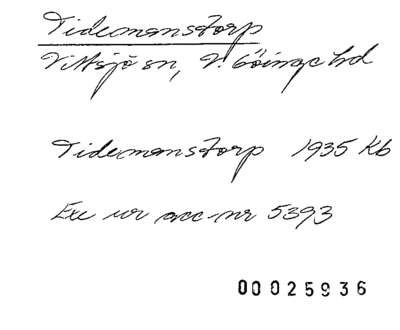 Tidemanstorp
Vittsjö sn, V. Göinge hd
Tidemanstorp 1935 Kb
Exc ur acc-nr 5393
00025936